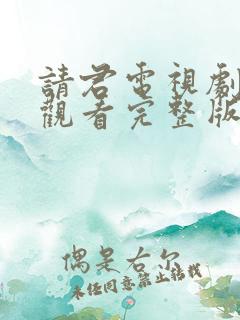 請君電視劇
觀看完整版
偶是右尔
未经同意禁止转载